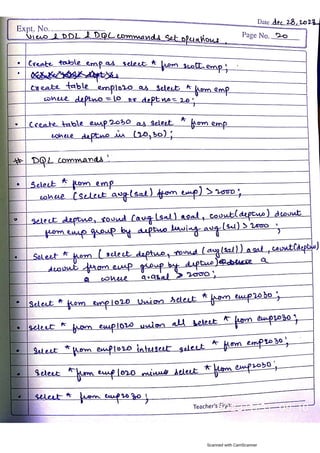 Date Dec 28, 2023
Expt. No.
Page No. 20
View & DDL & DQL commands Set operations.
• Create table emp as select * from scott.emp;
•
Create table emp1020 as select * from emp
where deptno=10 or deptno=20;
• Create table emp2030 as select * from emp
where deptno in (20,30);
# DQL commands:
• Select * from emp
where (select avg(sal) from emp) > 2000;
• select deptno, round (avg(sal)) asal, count(deptno) dcount
from emp group by deptno having avg(sal) > 2000;
• Select * from (select deptno, round (avg(sal)) asal, count(deptno)
dcount from emp group by deptno) a
where a.asal > 2000;
• Select * from emp1020 union select * from emp2030;
• select * from emp1020 union all select * from emp2030;
• Select * from emp1020 intersect select * from emp2030;
• Select * from emp1020 minus select * from emp2030;
• select * from emp2030;
Teacher's Sign.
Scanned with CamScanner